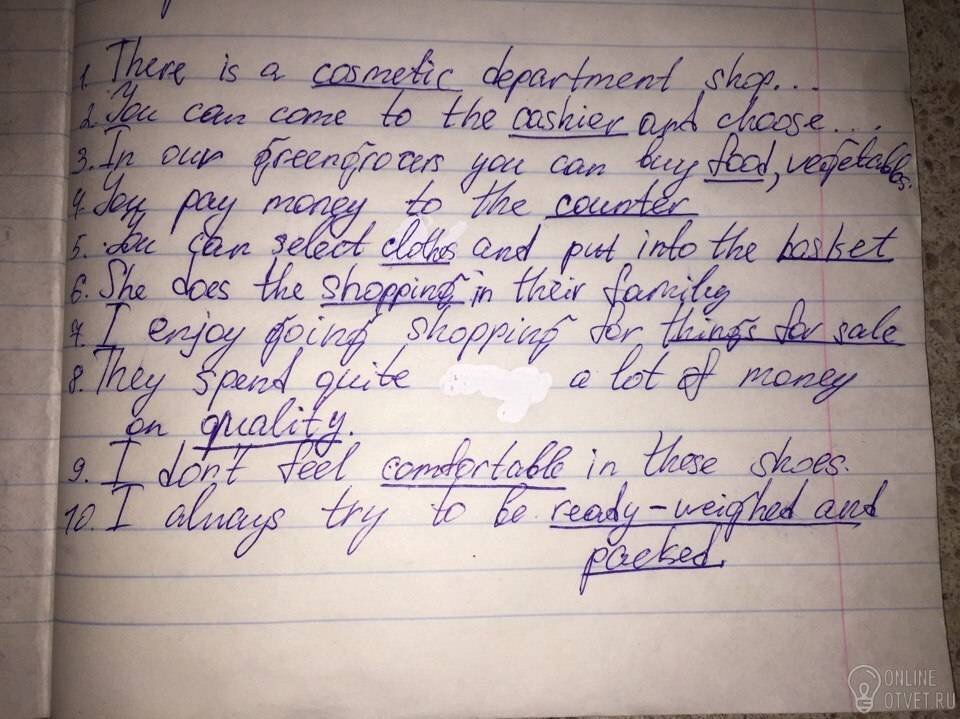 1. There is a cosmetic department shop...
2. You can come to the cashier and choose....
3. In our greengrocers you can buy food, vegetables.
4. You pay money to the counter
5. You can select cloths and put into the basket
6. She does the shopping in their family
7. I enjoy going shopping for things for sale
8. They spend quite a lot of money
on quality.
9. I don't feel comfortable in these shoes.
10. I always try to be ready-weighed and
packed.
ONLINE
OTVET.RU